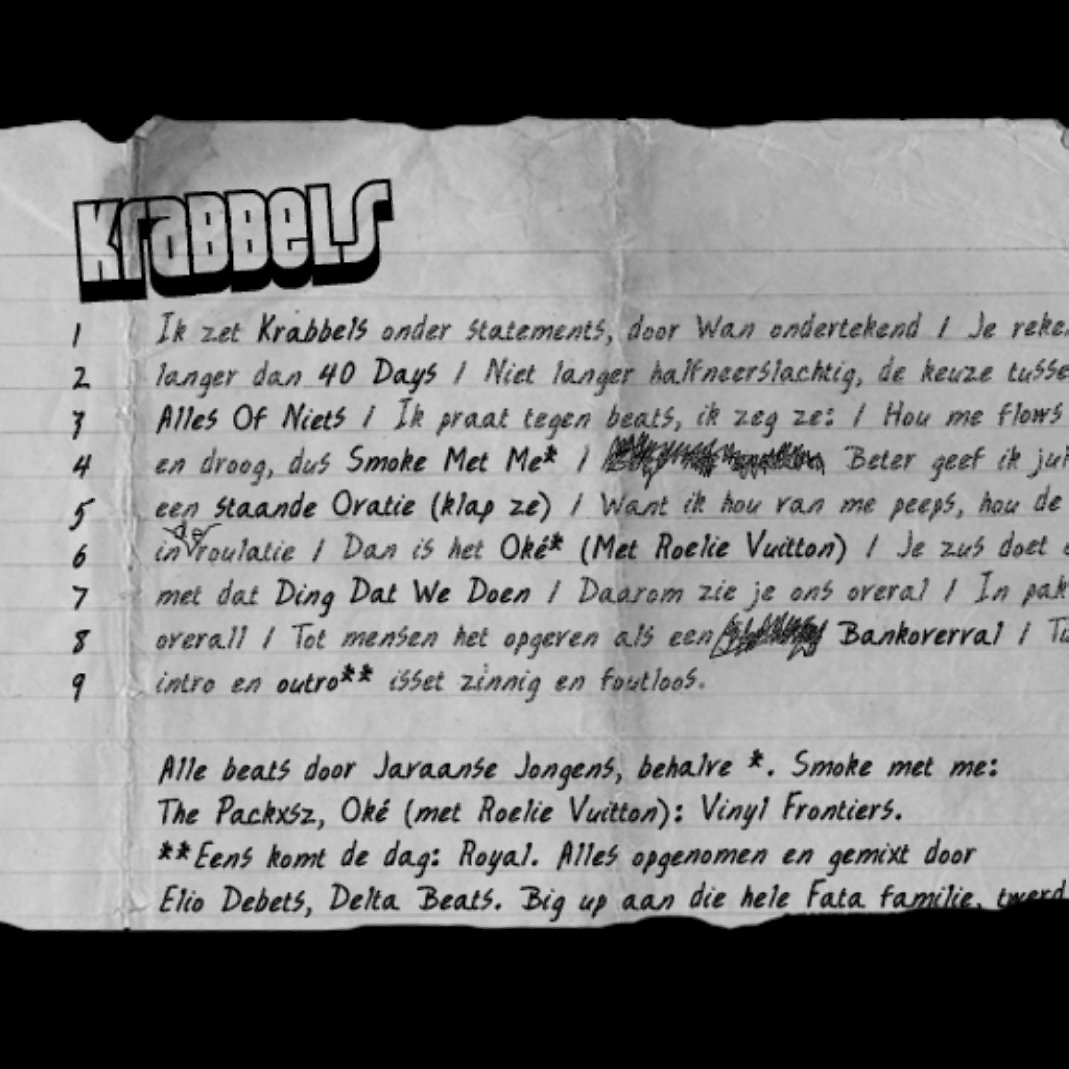 Krabbels
1 Ik zet Krabbels onder statements, door Wan ondertekend / Je reke
2 langer dan 40 Days / Niet langer halfneerslachtig, de keuze tusse
3 Alles Of Niets / Ik praat tegen beats, ik zeg ze: / Hou me flows
4 en droog, dus Smoke Met Me* / Beter geef ik ju
5 een staande Oratie (klap ze) / Want ik hou van me peeps, hou de
6 in de roulatie / Dan is het Oké* (Met Roelie Vuitton) / Je zus doet
7 met dat Ding Dat We Doen / Daarom zie je ons overal / In pak
8 overall / Tot mensen het opgeven als een Bankoverval / Tu
9 intro en outro** isset zinnig en foutloos.
Alle beats door Javaanse Jongens, behalve *. Smoke met me:
The Packxsz, Oké (met Roelie Vuitton): Vinyl Frontiers.
**Eens komt de dag: Royal. Alles opgenomen en gemixt door
Elio Debets, Delta Beats. Big up aan die hele Fata familie, twerd